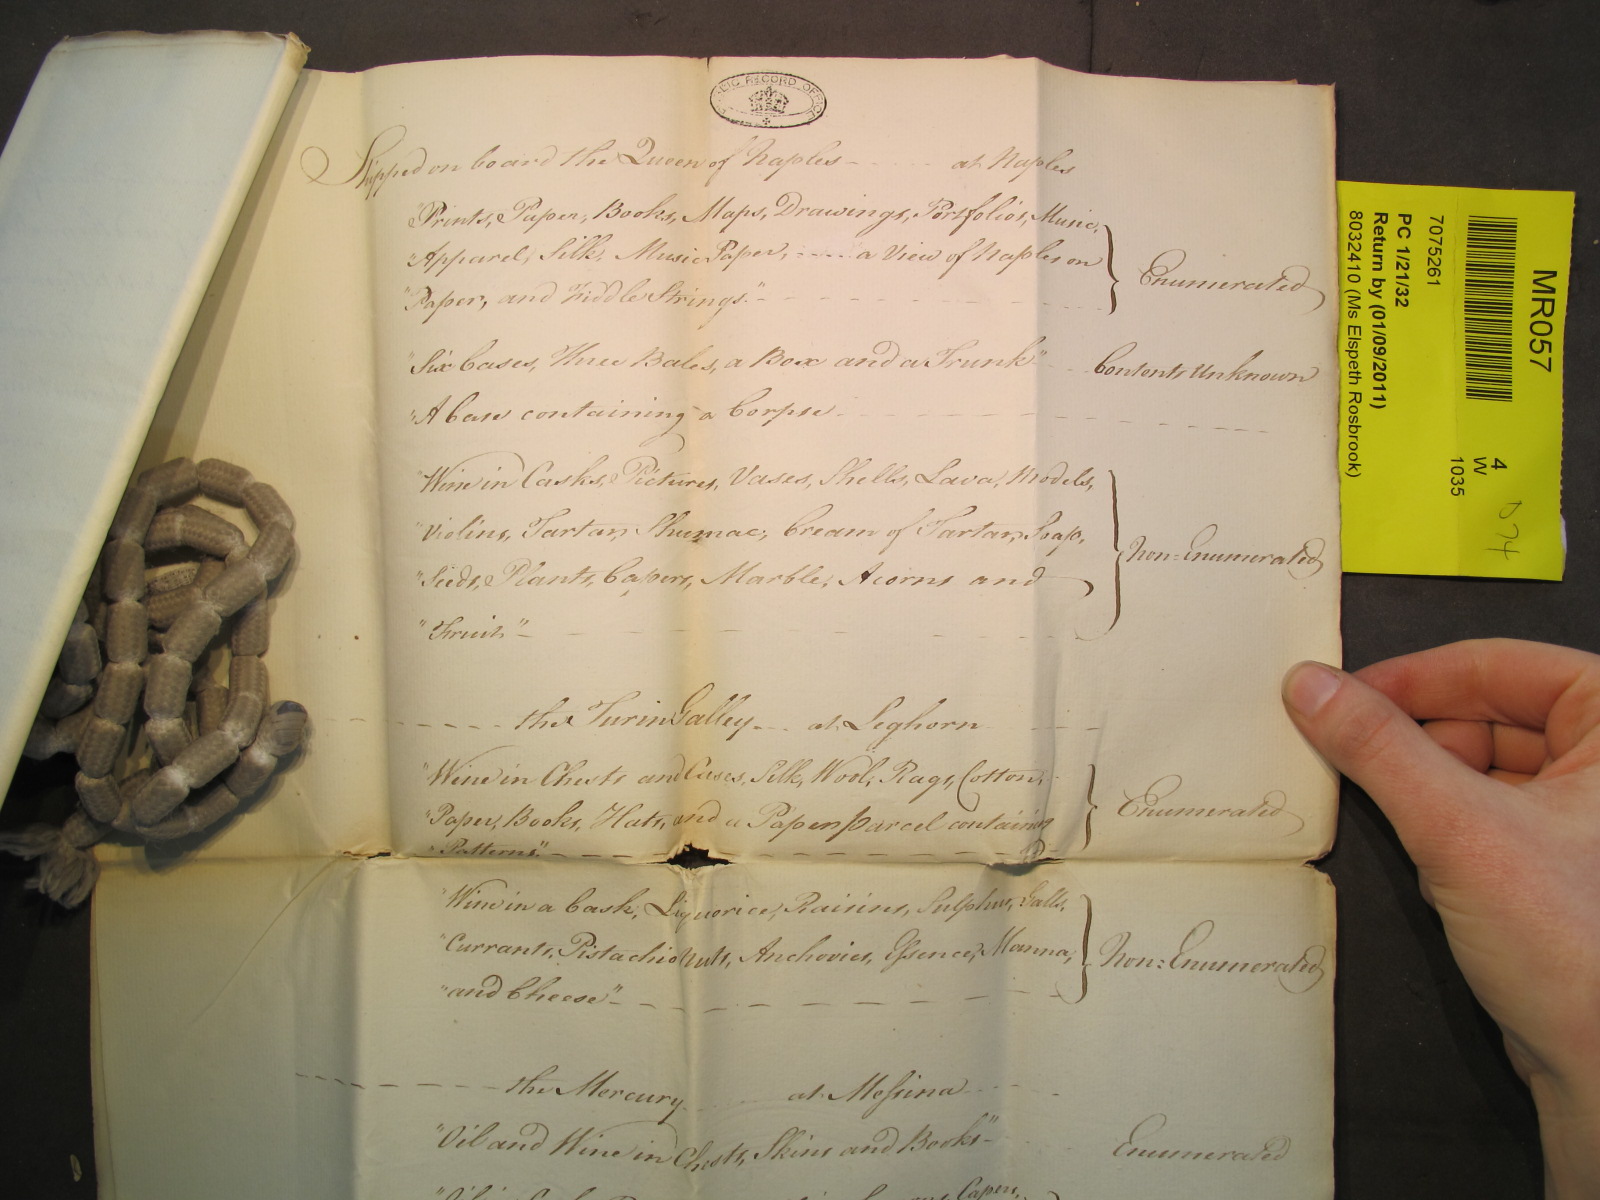 PUBLIC RECORD OFFICE
Shipped on board the Queen of Naples at Naples
"Prints, Paper, Books, Maps, Drawings, Portfolio's, Music,
"Apparel, Silk, Music Paper, a View of Naples on
"Paper, and Fiddle Strings."
Enumerated
"Six Cases, Three Bales, a Box and a Trunk" Contents Unknown
"A Case containing a Corpse
"Wine in Casks, Pictures, Vases, Shells, Lava, Models,
"Violins, Tartar, Shumac, Cream of Tartar, Soap,
"Seeds, Plants, Capers, Marble, Acorns and
"Fruit"
Non-Enumerated
the Turin Galley at Leghorn
"Wine in Chests and Cases, Silk, Wool, Rags, Cotton,
"Paper, Books, Hats, and a Paper parcel containing
"Patterns"
Enumerated
"Wine in a Cask, Liquorice, Raisins, Sulphur, Galls,
"Currants, Pistachio Nuts, Anchovies, Essence, Manna,
"and Cheese"
Non-Enumerated
the Mercury at Messina
"Oil and Wine in Chests, Skins and Books" Enumerated
Capers,
MR057
7075261
PC 1/21/32
Return by (01/09/2011)
8032410 (Ms Elspeth Rosbrook)
4
W
1035